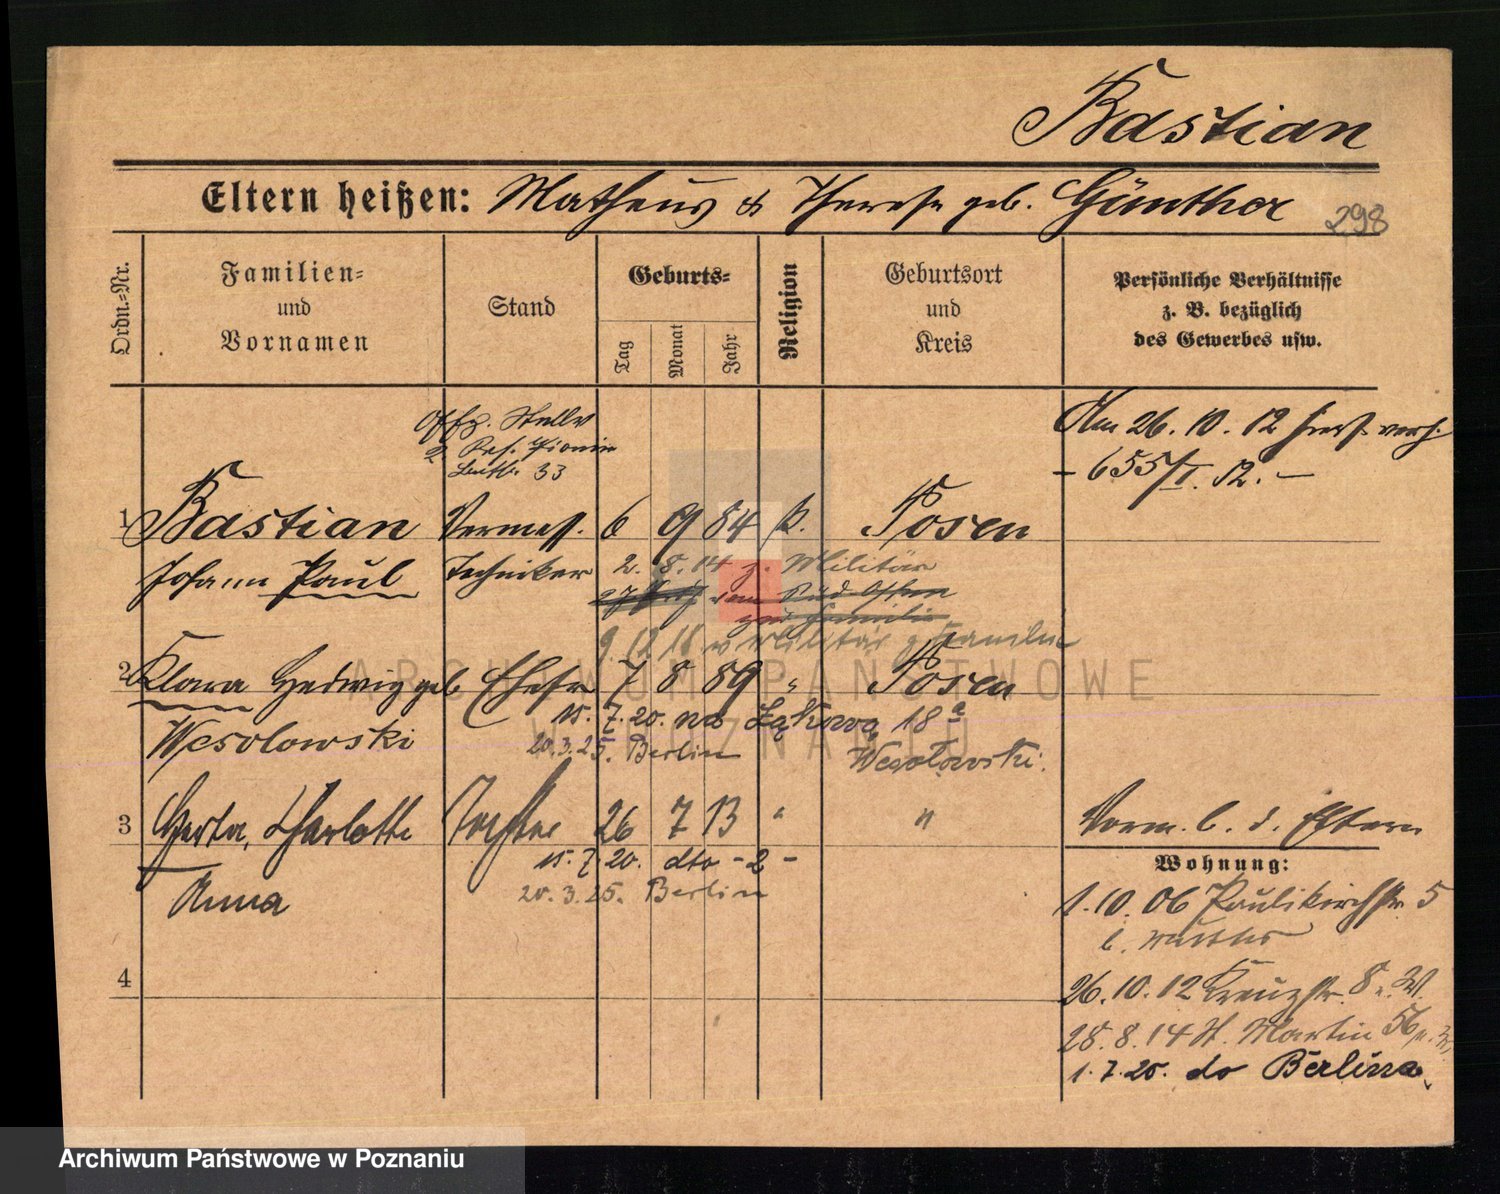 Bastian
Eltern heißen: Matheus & Therese geb. Günther
298
Ordn.=Nr.
Familien=
und
Vornamen
Stand
Geburts=
Tag
Monat
Jahr
Religion
Geburtsort
und
Kreis
Persönliche Verhältnisse
z. B. bezüglich
des Gewerbes usw.
Offz. Stellv
2. Res. Pionier
Battl. 33
Am 26. 10. 12 hier verh.
- 655/I. 12. -
1 Bastian Vermess. 6 9 84 k. Posen
Johann Paul Techniker 2. 8. 14 z. Militär
zur Familie
9 12 18 v Militär z Familie
2 Klara Hedwig geb Ehefr 7 8 89 " Posen
15. 7. 20. na Łąkową 18a
Wesolowski 20. 3. 25. Berlin Wesołowski.
3 Herta, Charlotte Tochter 26 7 13 " " Vorm. b. d. Eltern
15. 7. 20. dto - 2 -
Anna 20. 3. 25. Berlin
4
Wohnung:
1. 10. 06 Paulikirchstr. 5
b. Mutter
26. 10. 12 Kreuzstr. 8 n. W.
28. 8. 14 St. Martin 56 n. W.
1. 7. 20. do Berlina
ARCHIWUM PAŃSTWOWE
W POZNANIU
Archiwum Państwowe w Poznaniu